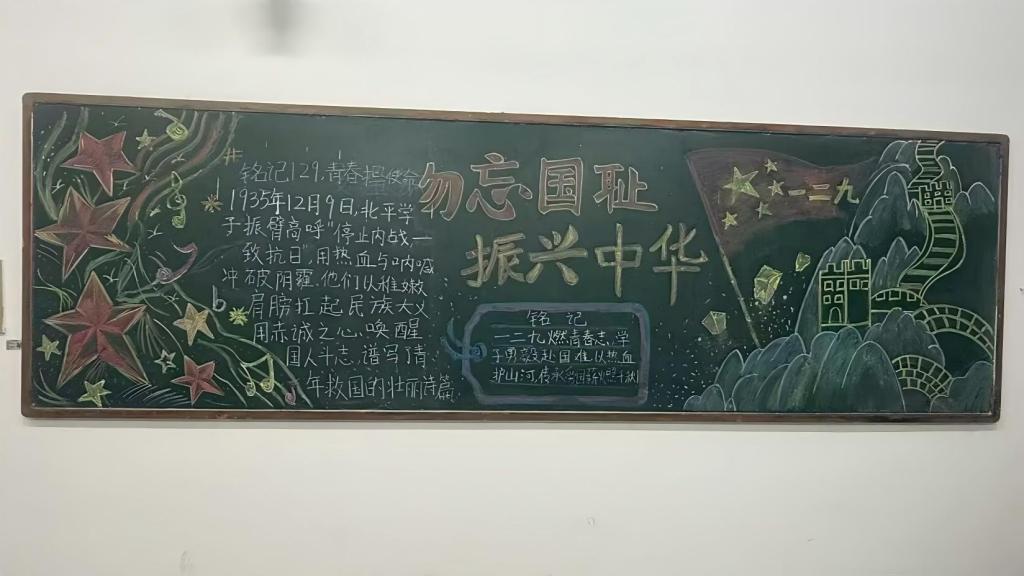 铭记129.青春担使命
1935年12月9日,北平学
子振臂高呼"停止内战一
致抗日",用热血与呐喊
冲破阴霾.他们以稚嫩
肩膀扛起民族大义
用赤诚之心唤醒
国人斗志,谱写请
年救国的壮丽诗篇
勿忘国耻
振兴中华
铭记
一二九燃青春志,学
子勇毅赴国难以热血
护山河
一二九